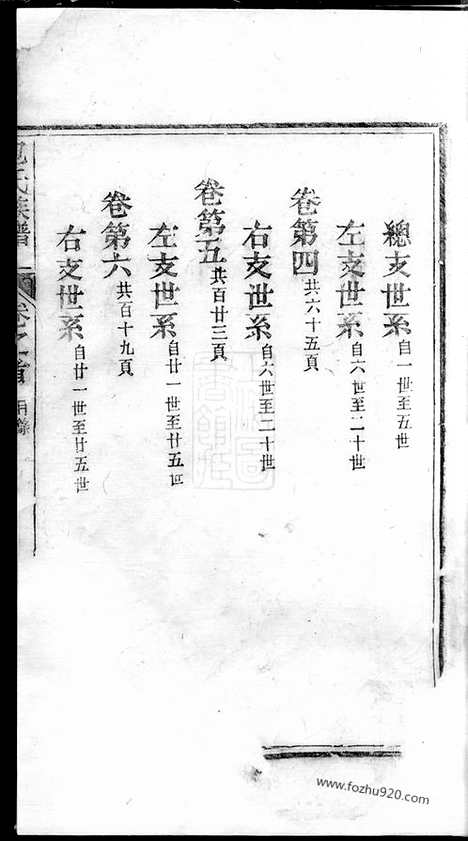 總支世系自一世至五世
左支世系自六世至二十世
卷第四共六十五頁
右支世系自六世至二十世
卷第五共百廿三頁
左支世系自廿一世至廿五世
卷第六共百十九頁
右支世系自廿一世至廿五世
氏族譜 卷之首 目錄
www.fozhu920.com